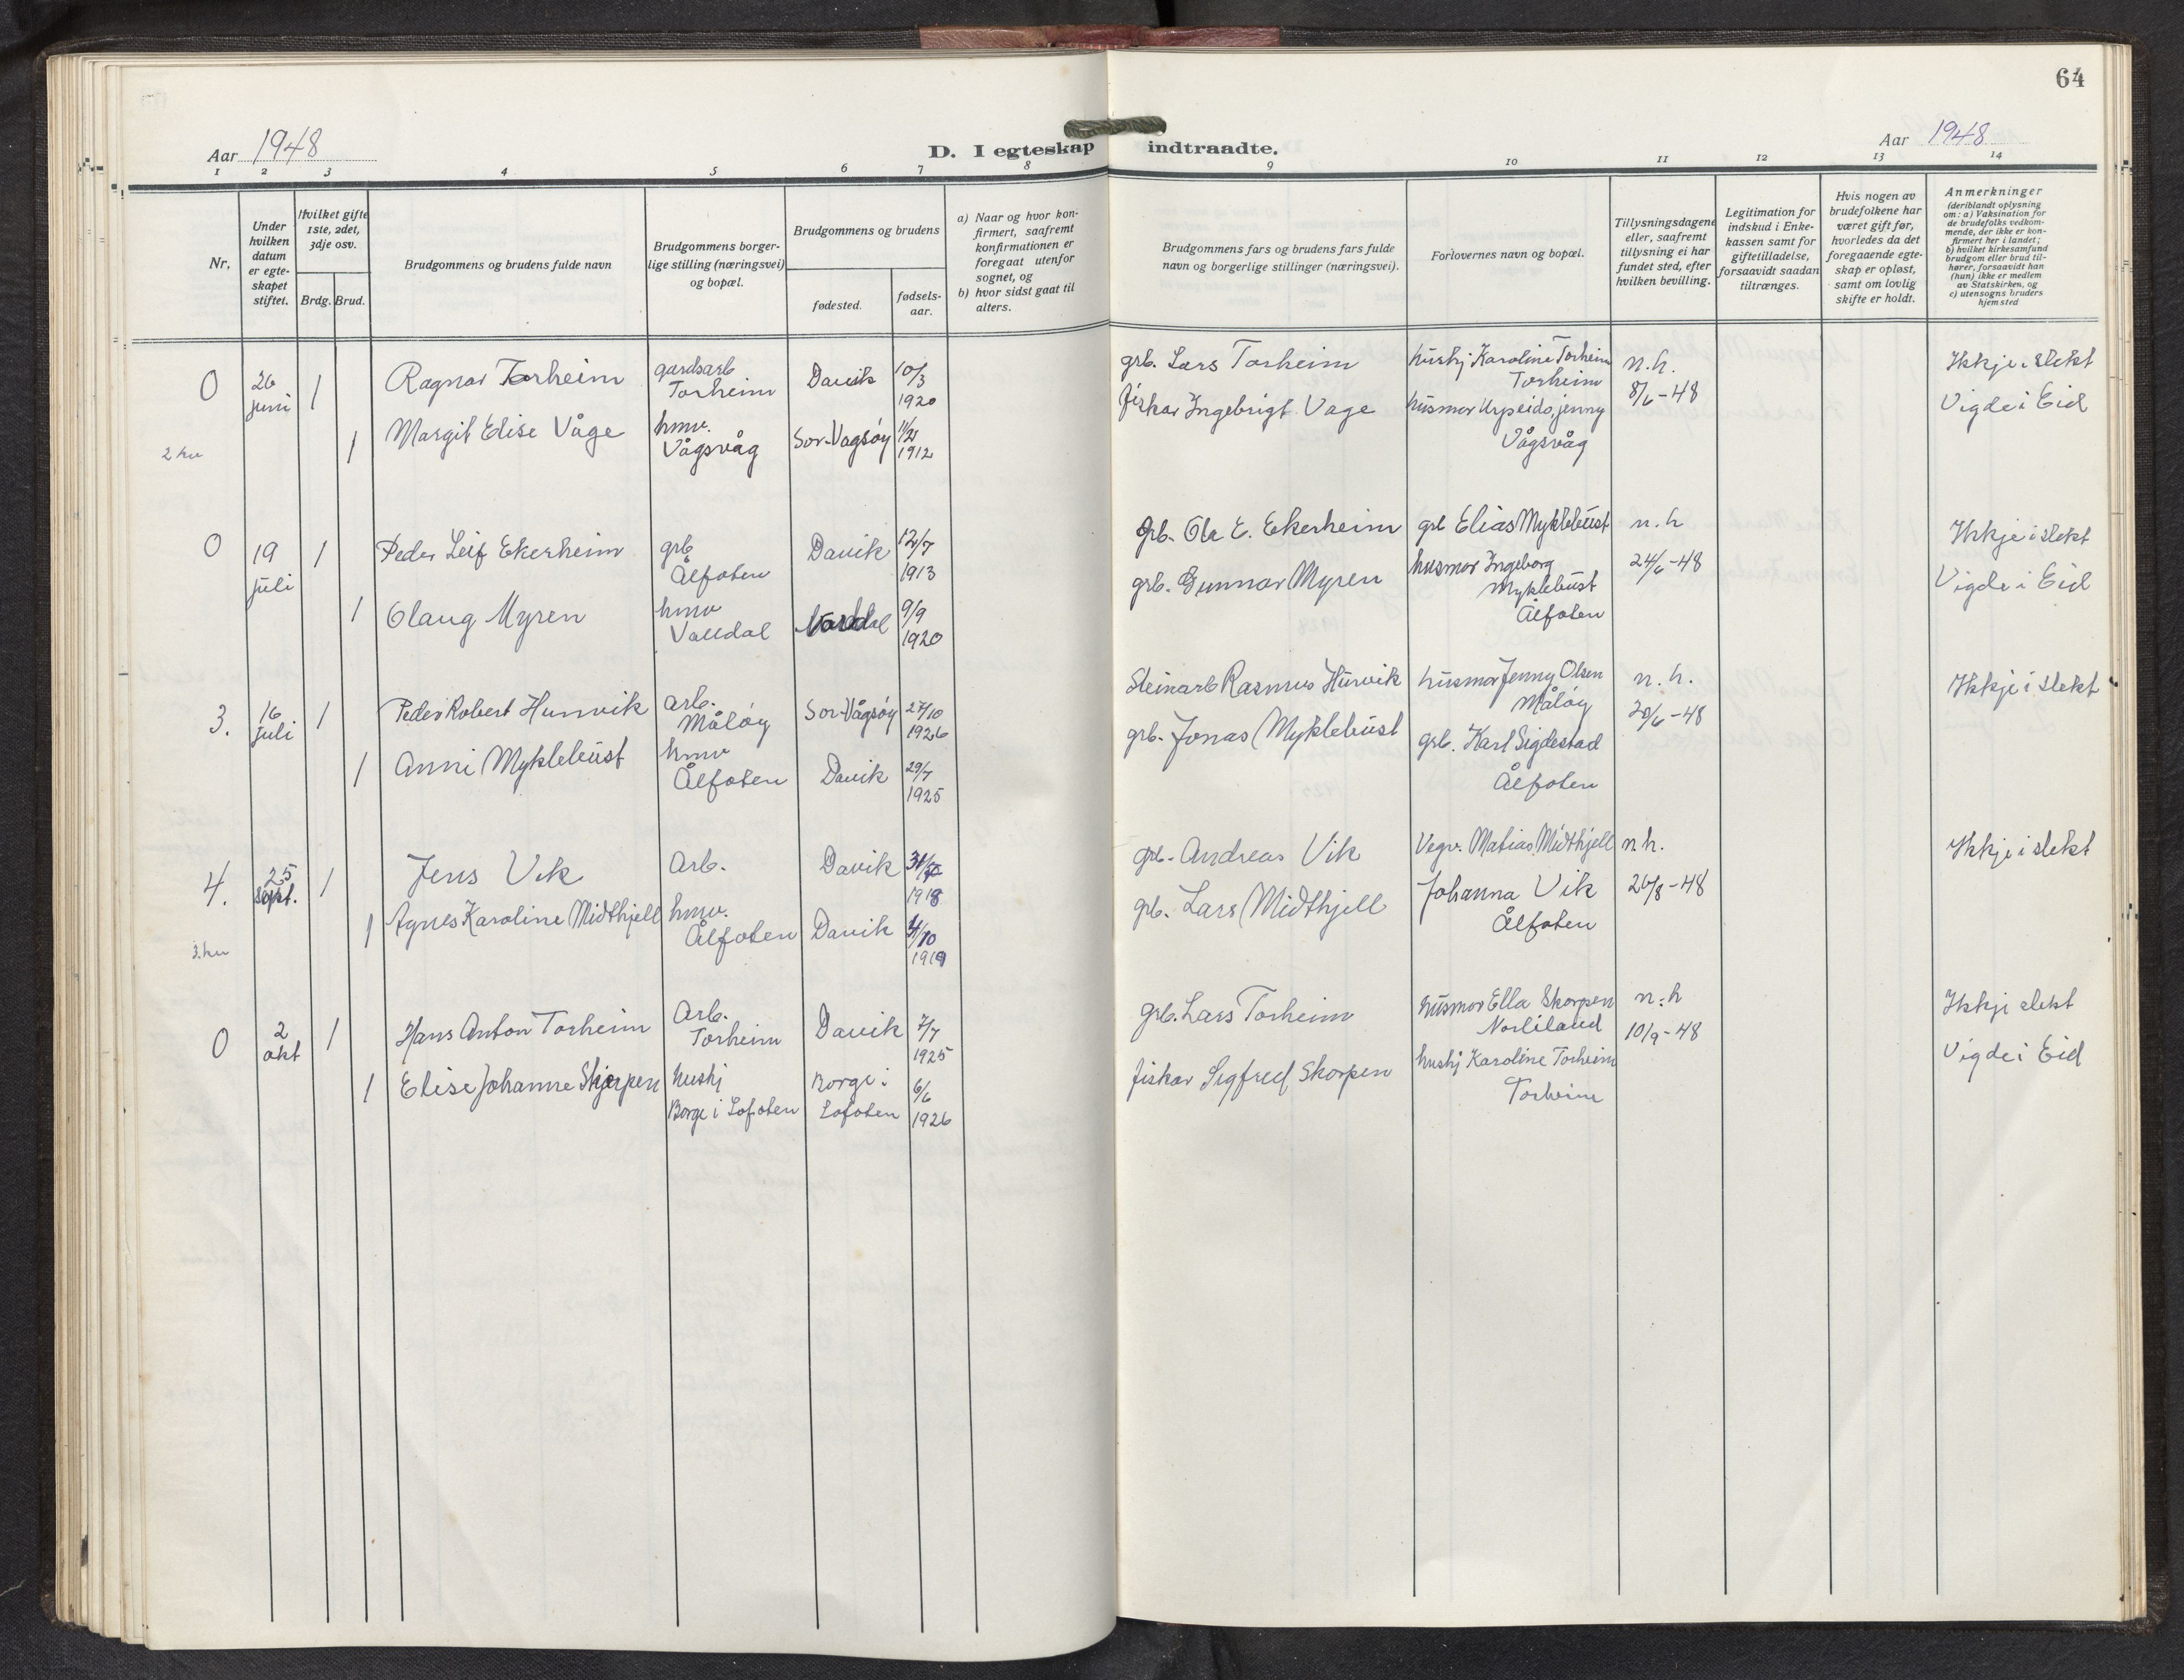 64
Aar 1948
D. I egteskap indtraadte.
Aar 1948
1 2 3 4 5 6 7 8 9 10 11 12 13 14
Nr.
Under hvilken datum er egte-skapet stiftet.
Hvilket gifte 1ste, 2det, 3dje osv.
Brdg. Brud.
Brudgommens og brudens fulde navn
Brudgommens borger-
lige stilling (næringsvei)
og bopæl.
Brudgommens og brudens
fødested.
fødsels-
aar.
a) Naar og hvor kon-
firmert, saafremt
konfirmationen er
foregaat utenfor
sognet, og
b) hvor sidst gaat til
alters.
Brudgommens fars og brudens fars fulde
navn og borgerlige stillinger (næringsvei).
Forlovernes navn og bopæl.
Tillysningsdagene
eller, saafremt
tillysning ei har
fundet sted, efter
hvilken bevilling.
Legitimation for
indskud i Enke-
kassen samt for
giftetilladelse,
forsaavidt saadan
tiltrænges.
Hvis nogen av
brudefolkene har
været gift før,
hvorledes da det
foregaaende egte-
skap er opløst,
samt om lovlig
skifte er holdt.
Anmerkninger
(deriblandt oplysning
om: a) Vaksination for
de brudefolks vedkom-
mende, der ikke er kon-
firmert her i landet;
b) hvilket kirkesamfund
brudgom eller brud til-
hører, forsaavidt han
(hun) ikke er medlem
av Statskirken, og
c) utensogns bruders
hjemsted
0 26 juni 1 Ragnar Torheim gardsarb Torheim Davik 10/3 1920 grb. Lars Torheim hushj Karoline Torheim Torheim n.h. 8/6-48 Ikkje i slekt
1 Margit Elise Våge hmv. Vågsvåg Sør-Vagsøy 1912 fiskar Ingebrigt Vage husmor jenny Vågsvåg Vigde i Eid
2 hv
0 19 juli 1 Peder Leif Ekerheim grb Ålfoten Davik 12/7 1913 grb. Ola E. Ekerheim grb Elias Myklebust n.h 24/6-48 Ikkje i slekt
1 Olaug Myren hmv Valldal 9/9 1920 grb. Gunnar Myren husmor Ingeborg Myklebust Ålfoten Vigde i Eid
3. 16 juli 1 Peder Robert Hunvik arb. Måløy Sør-Vågsøy 27/10 1926 Steinarb Rasmus Hunvik husmor Jenny Olsen Måløy n.h. Ikkje i slekt
1 Anni Myklebust hmv Ålfoten Davik 29/7 1925 grb. Jonas Myklebust grb. Karl Sigdestad Ålfoten
4. 25 sept. 1 Jens Vik Arb. Davik 1918 grb. Andreas Vik Vegv. Matias Midthjell n.h. 26/8-48 Ikkje i slekt
1 Agnes Karoline Midthjell hmv. Ålfoten Davik 1919 grb. Lars Midthjell Johanna Vik Ålfoten
3. hv
0 2 okt 1 Hans Anton Torheim Arb. Torheim Davik 7/7 1925 grb. Lars Torheim husmor Ella Skorpen Norliland n.h 10/9-48 Ikkje slekt
1 Elise Johanne Skjerpen hushj Borge i Lofoten Borge i Lofoten 6/6 1926 fiskar Sigfred Skorpen hushj Karoline Torheim Torheim Vigde i Eid